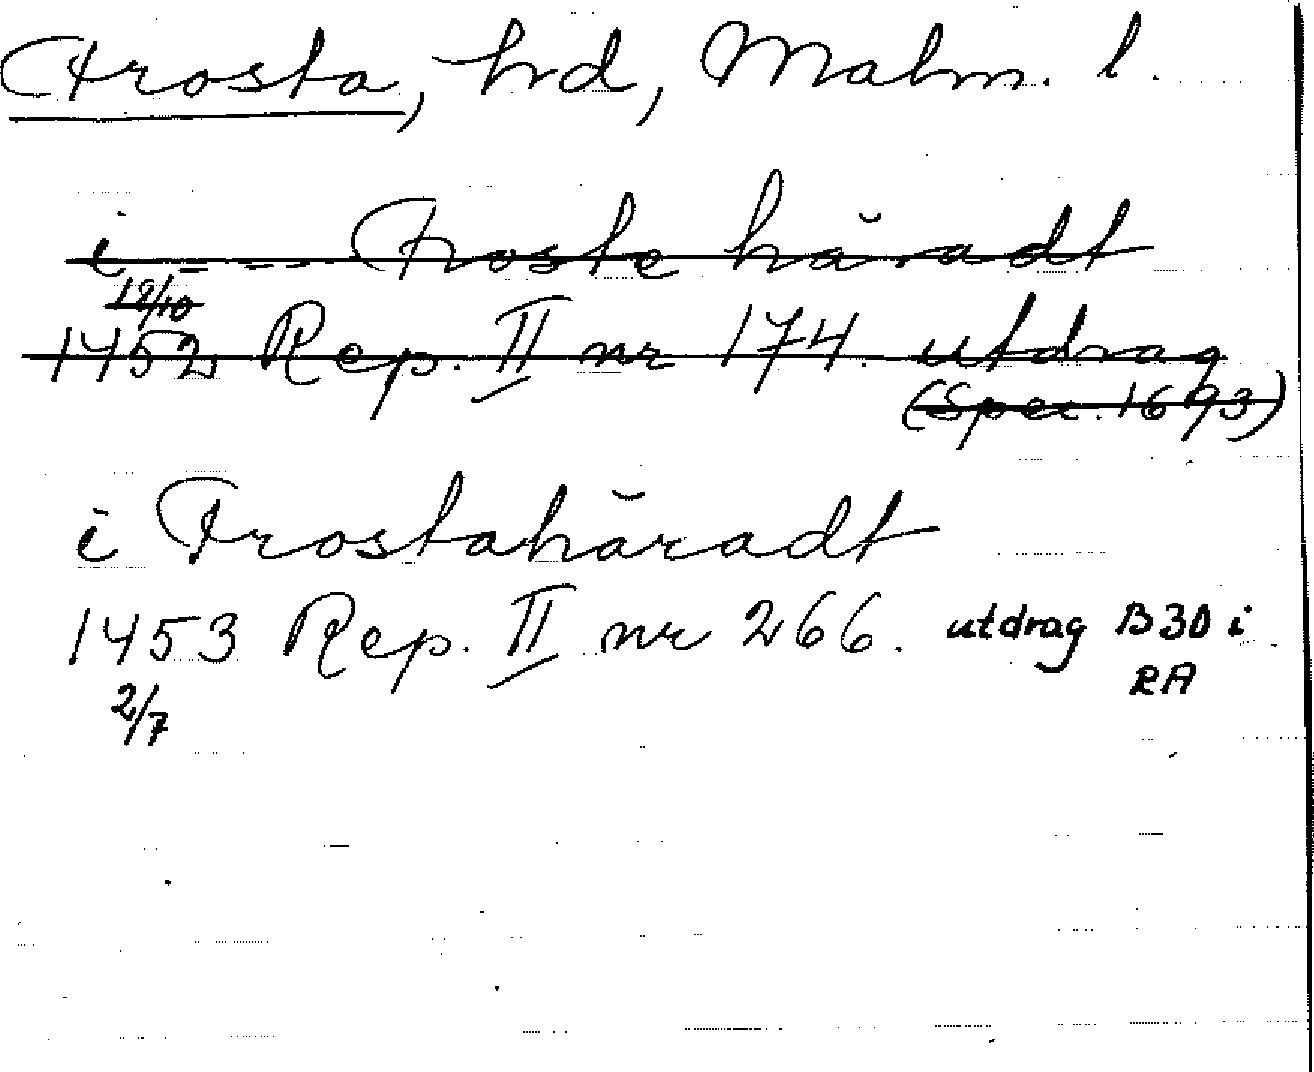 Frosta, hrd, Malm. l.
i --- Froste häradt
12/10
1452 Rep. II nr 174. utdrag
(Spec. 1693)
i Frostahäradt
1453 Rep. II nr 266. utdrag B30 i
RA
2/7